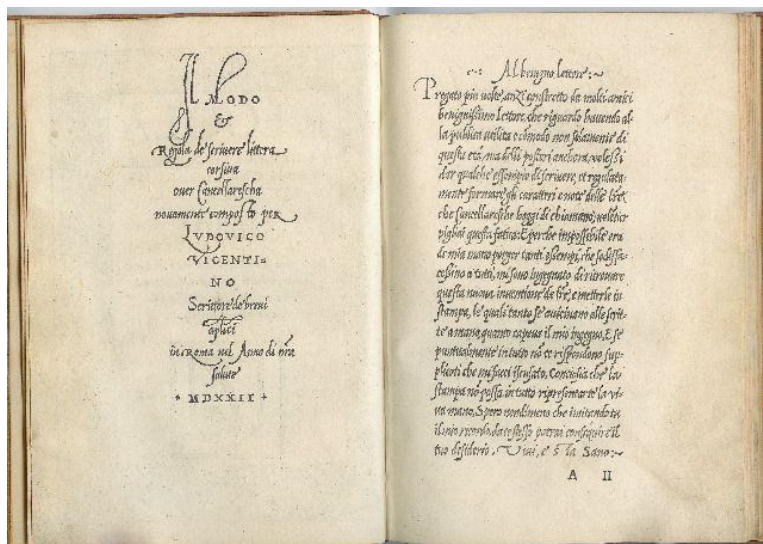 Il MODO
&
Regola de scrivere littera
corsiva
over Cancellarescha
novamente composto per
LVDOVICO
VICENTI=
NO
Scrittore de brevi
aplici
in Roma nel Anno di nra
salute
+ MDXXII +
Al benigno lettore:~
Pregato piu volte, anzi constretto da molti amici
benignissimo Lettore, che riguardo havendo al-
la publica utilita e cōmodo non solamente di
questa età, ma delli posteri anchora, volessi
dar qualche essempio di scrivere, et regulata-
mente formare gli caratteri e note delle lre,
che Cancellaresche hoggi di chiamano, volētier
pigliai questa fatica: E perche impossibile era
de mia mano porger tanti essempi, che sodisfa-
cessino a tutti, mi sono ingegnato di ritrovare
questa nuova inventione de lre, e metterle in
stampa, le quali tanto se avicinano alle scrit-
te a mano quanto capeva il mio ingegno, E se
puntualmente in tutto nō te rispondono, sup-
plicoti che mi facci iscusato, Conciosia che la
stampa nō possa in tutto ripresentarte la vi-
va mano, Spero nondimeno che imitando tu
il mio ricordo, da te stesso potrai consequire il
tuo desiderio. Vivi, e sta Sano:~
A II